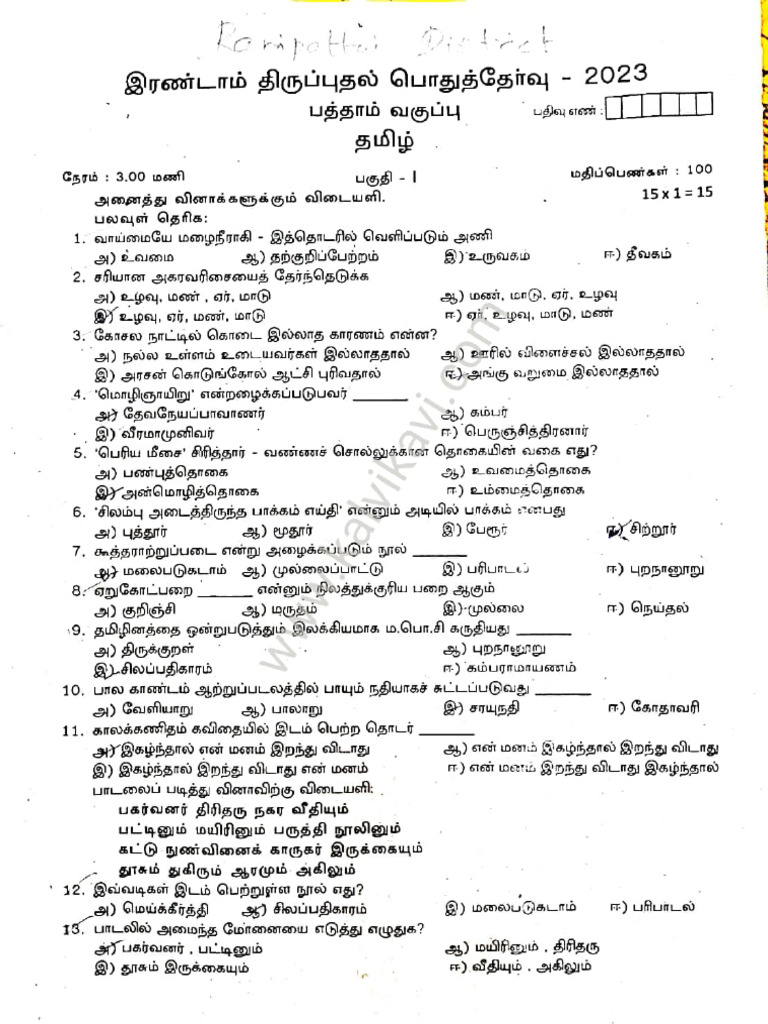 Ranipattai District
இரண்டாம் திருப்புதல் பொதுத்தேர்வு - 2023
பத்தாம் வகுப்பு
பதிவு எண் :
தமிழ்
நேரம் : 3.00 மணி பகுதி - I மதிப்பெண்கள் : 100
அனைத்து வினாக்களுக்கும் விடையளி. 15 x 1 = 15
பலவுள் தெரிக:
1. வாய்மையே மழைநீராகி - இத்தொடரில் வெளிப்படும் அணி
அ) உவமை ஆ) தற்குறிப்பேற்றம் இ) உருவகம் ஈ) தீவகம்
2. சரியான அகரவரிசையைத் தேர்ந்தெடுக்க
அ) உழவு, மண் , ஏர், மாடு ஆ) மண், மாடு, ஏர், உழவு
இ) உழவு, ஏர், மண், மாடு ஈ) ஏர், உழவு, மாடு, மண்
3. கோசல நாட்டில் கொடை இல்லாத காரணம் என்ன?
அ) நல்ல உள்ளம் உடையவர்கள் இல்லாததால் ஆ) ஊரில் விளைச்சல் இல்லாததால்
இ) அரசன் கொடுங்கோல் ஆட்சி புரிவதால் ஈ) அங்கு வறுமை இல்லாததால்
4. 'மொழிஞாயிறு' என்றழைக்கப்படுபவர் ________
அ) தேவநேயப்பாவாணர் ஆ) கம்பர்
இ) வீரமாமுனிவர் ஈ) பெருஞ்சித்திரனார்
5. 'பெரிய மீசை' சிரித்தார் - வண்ணச் சொல்லுக்கான தொகையின் வகை எது?
அ) பண்புத்தொகை ஆ) உவமைத்தொகை
இ) அன்மொழித்தொகை ஈ) உம்மைத்தொகை
6. 'சிலம்பு அடைத்திருந்த பாக்கம் எய்தி' என்னும் அடியில் பாக்கம் என்பது
அ) புத்தூர் ஆ) மூதூர் இ) பேரூர் ஈ) சிற்றூர்
7. கூத்தராற்றுப்படை என்று அழைக்கப்படும் நூல் ________
அ) மலைபடுகடாம் ஆ) முல்லைப்பாட்டு இ) பரிபாடல் ஈ) புறநானூறு
8. ஏறுகோட்பறை ________ என்னும் நிலத்துக்குரிய பறை ஆகும்
அ) குறிஞ்சி ஆ) மருதம் இ) முல்லை ஈ) நெய்தல்
9. தமிழினத்தை ஒன்றுபடுத்தும் இலக்கியமாக ம.பொ.சி கருதியது ________
அ) திருக்குறள் ஆ) புறநானூறு
இ) சிலப்பதிகாரம் ஈ) கம்பராமாயணம்
10. பால காண்டம் ஆற்றுப்படலத்தில் பாயும் நதியாகச் சுட்டப்படுவது ________
அ) வேளியாறு ஆ) பாலாறு இ) சரயுநதி ஈ) கோதாவரி
11. காலக்கணிதம் கவிதையில் இடம் பெற்ற தொடர் ________
அ) இகழ்ந்தால் என் மனம் இறந்து விடாது ஆ) என் மனம் இகழ்ந்தால் இறந்து விடாது
இ) இகழ்ந்தால் இறந்து விடாது என் மனம் ஈ) என் மனம் இறந்து விடாது இகழ்ந்தால்
பாடலைப் படித்து வினாவிற்கு விடையளி:
பகர்வனர் திரிதரு நகர வீதியும்
பட்டினும் மயிரினும் பருத்தி நூலினும்
கட்டு நுண்வினைக் காருகர் இருக்கையும்
தூசும் துகிரும் ஆரமும் அகிலும்
12. இவ்வடிகள் இடம் பெற்றுள்ள நூல் எது?
அ) மெய்க்கீர்த்தி ஆ) சிலப்பதிகாரம் இ) மலைபடுகடாம் ஈ) பரிபாடல்
13. பாடலில் அமைந்த மோனையை எடுத்து எழுதுக?
அ) பகர்வனர் , பட்டினும் ஆ) மயிரினும் , திரிதரு
இ) தூசும் இருக்கையும் ஈ) வீதியும் , அகிலும்
www.kalvikavi.com